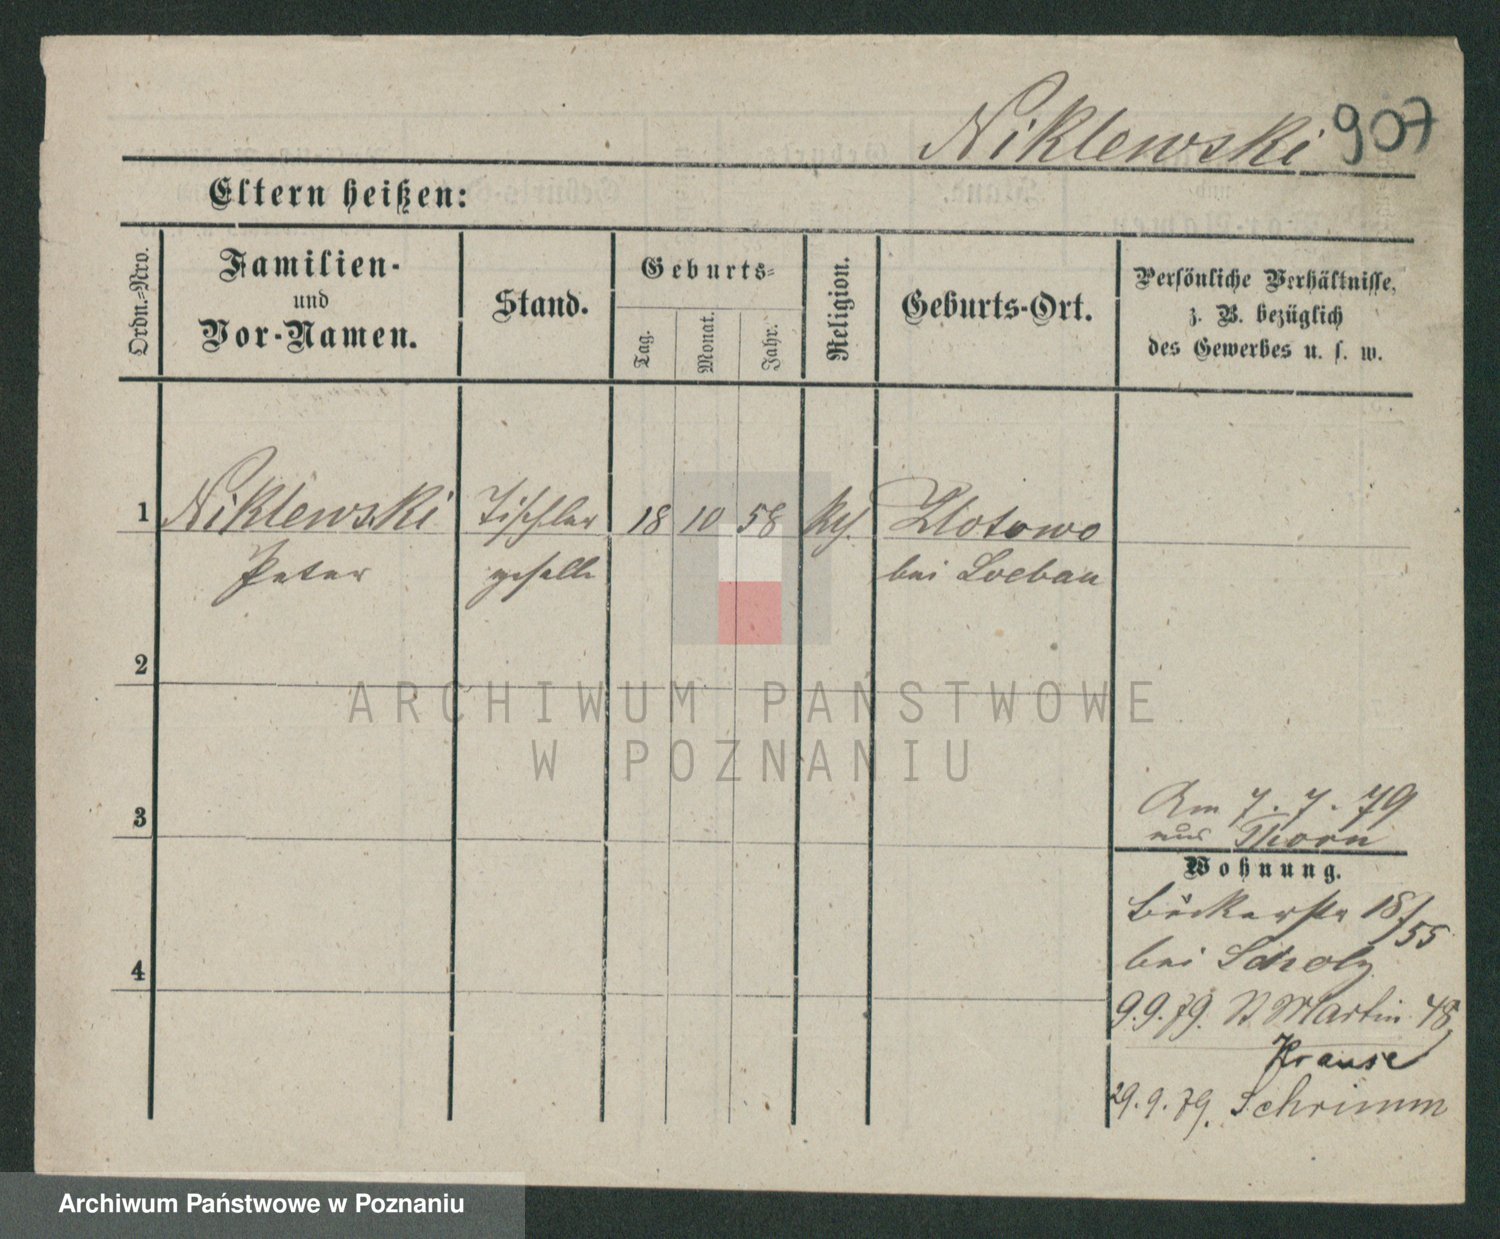 Niklewski 907
Eltern heißen:
Ordn.=Nro.
Familien-
und
Vor-Namen.
Stand.
Geburts=
Tag.
Monat.
Jahr.
Religion.
Geburts-Ort.
Persönliche Verhältnisse,
z. B. bezüglich
des Gewerbes u. s. w.
1 Niklewski Tischler 18 10 58 Zlotowo
Peter geselle bei Loebau
2
3
4
Am 7. 7. 79
aus Thorn
Wohnung.
Bäckerstr 18/55
bei Scholz
9.9.79. St Martin 48,
Krause
29.9.79. Schrimm
ARCHIWUM PAŃSTWOWE
W POZNANIU
Archiwum Państwowe w Poznaniu